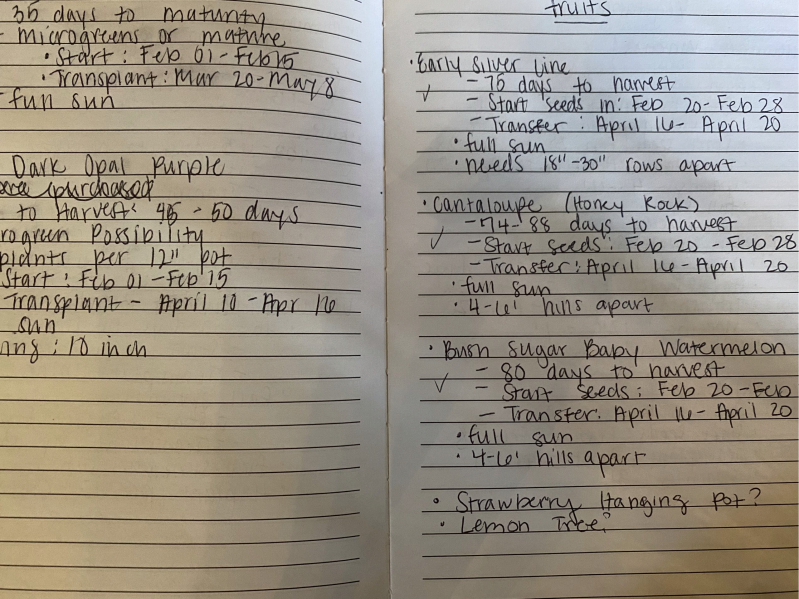 35 days to maturity
- microgreens or mature
• Start: Feb 01 - Feb 15
• Transplant: Mar 20 - May 8
- full sun
Dark Opal Purple
(purchased)
to Harvest: 45 - 50 days
rogreen Possibility
plants per 12" pot
Start: Feb 01 - Feb 15
Transplant - April 10 - Apr 16
sun
ing: 10 inch
fruits
• Early Silver Line
✓ - 75 days to harvest
- Start seeds in: Feb 20 - Feb 28
- Transfer: April 16 - April 20
• full sun
• needs 18"-30" rows apart
• Cantaloupe (Honey Rock)
✓ - 74-88 days to harvest
- Start seeds: Feb 20 - Feb 28
- Transfer: April 16 - April 20
• full sun
• 4-6' hills apart
• Bush Sugar Baby Watermelon
✓ - 80 days to harvest
- Start seeds: Feb 20 - Feb
- Transfer: April 16 - April 20
• full sun
• 4-6' hills apart
• Strawberry Hanging Pot?
• Lemon Tree?